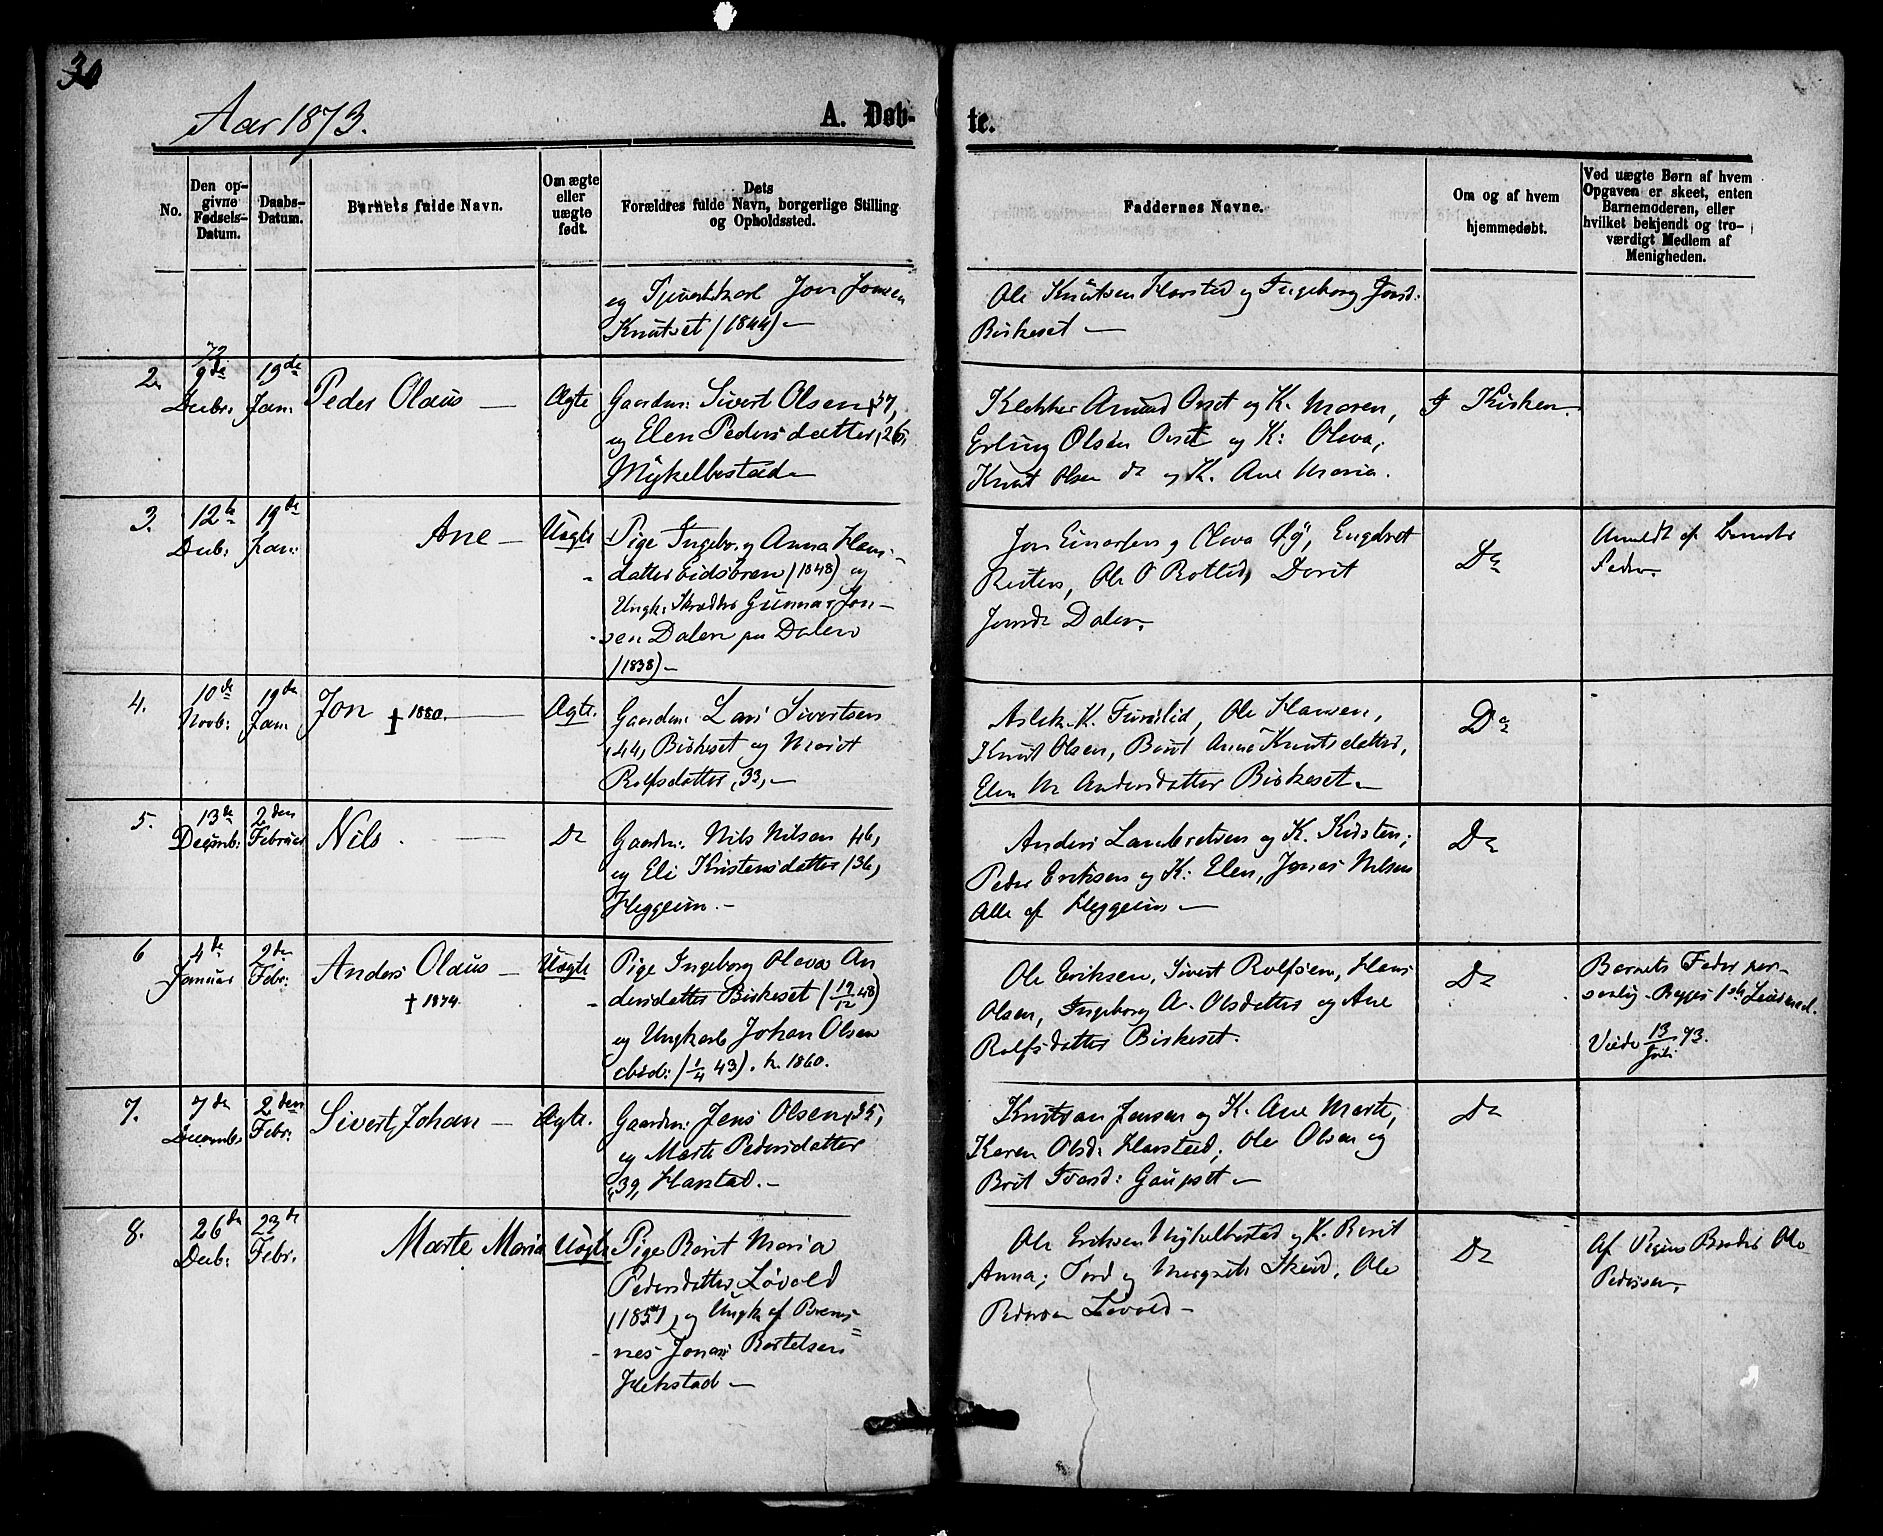 30
Aar 1873.
A. Døb-
te.
No.
Den op-
givne
Fødsels-
Datum.
Daabs-
Datum.
Barnets fulde Navn.
Om ægte
eller
uægte
født.
Dets
Forældres fulde Navn, borgerlige Stilling
og Opholdssted.
Faddernes Navne.
Om og af hvem
hjemmedøbt.
Ved uægte Børn af hvem
Opgaven er skeet, enten
Barnemoderen, eller
hvilket bekjendt og tro-
værdigt Medlem af
Menigheden.
og Jon Jonsen
Knutset (1844) —
Ole Knutsen Harstad og Ingeborg Jonsd:
Birkeset —
2.
72
9de
Decbr:
19de
Jan:
Peder Olaus —
Ægte
Gaardm: Sivert Olsen, 37,
og Elen Pedersdatter, 26,
Mykelbostad
Klokker Amund Orset og K. Maren,
Erling Olsen Orset og K: Olava,
Knut Olsen do og K. Ane Maria.
I Kirken
3.
12te
Decb:
19de
Jan:
Ane —
Uægte
Pige Ingeborg Anna Hans-
datter Eidsøren (1848) og
Ungk: Skrædder Gunnar Jon-
sen Dalen paa Dalen
(1838) —
Jon Einarsen og Olava Øy, Engebret
Reiten, Ole O Rotlid, Dorit
Jonsd. Dalen.
Do
Anmeldt af Barnets
Fader.
4.
10de
Novb:
19de
Jan:
Jon † 1880. —
Ægte.
Gaardm: Lars Sivertsen
44, Birkeset og Marit
Rolfsdatter, 33, —
Aslak K. Furulid, Ole Hansen,
Knut Olsen, Berit Anne Knutsdatter,
Elen M Andersdatter Birkeset. —
Do
5.
13de
Decemb:
2den
Februar
Nils. —
Do
Gaardm: Nils Nilsen 46,
og Eli Kristensdatter, 36,
Heggeim. —
Anders Lambretsen og K. Kirsten;
Peder Eriksen og K: Elen, Jonas Nilsen
Alle af Heggeim —
Do
6
4de
Januar
2den
Febr:
Anders Olaus —
† 1874
Uægte
Pige Ingeborg Olava An
dersdatter Birkeset (19/12 48)
og Ungkarl Johan Olsen
ibid: (1/4 43). k. 1860.
Ole Eriksen, Sivert Rolfsen, Hans
Olsen, Ingeborg A. Olsdatter og Ane
Rolfsdatter Birkeset.
Do
Barnets Fader per-
sonlig. Begges 1ste Leiermaal.
Viede 13/Juli 73.
7.
7de
Decemb:
2den
Febr:
Sivert Johan —
Ægte.
Gaardm: Jens Olsen, 35,
og Marte Pedersdatter
39, Harstad. —
Kristian Jensen og K. Ane Marte,
Karen Olsd: Harstad, Ole Olsen og
Brit Ivarsd: Gaupset —
Do
8.
26de
Decb:
23de
Febr.
Marte Maria
Uægte
Pige Berit Maria
Pedersdatter Løvold
(1851), og Ungk. af Brems-
nes Jonas Bertelsen
Hekstad —
Ole Eriksen Mykelbostad og K. Berit
Anna; Tord og Margrete Skeid, Ole
Pedersen Løvold —
Do
Af Pigens Broder Ole
Pedersen.